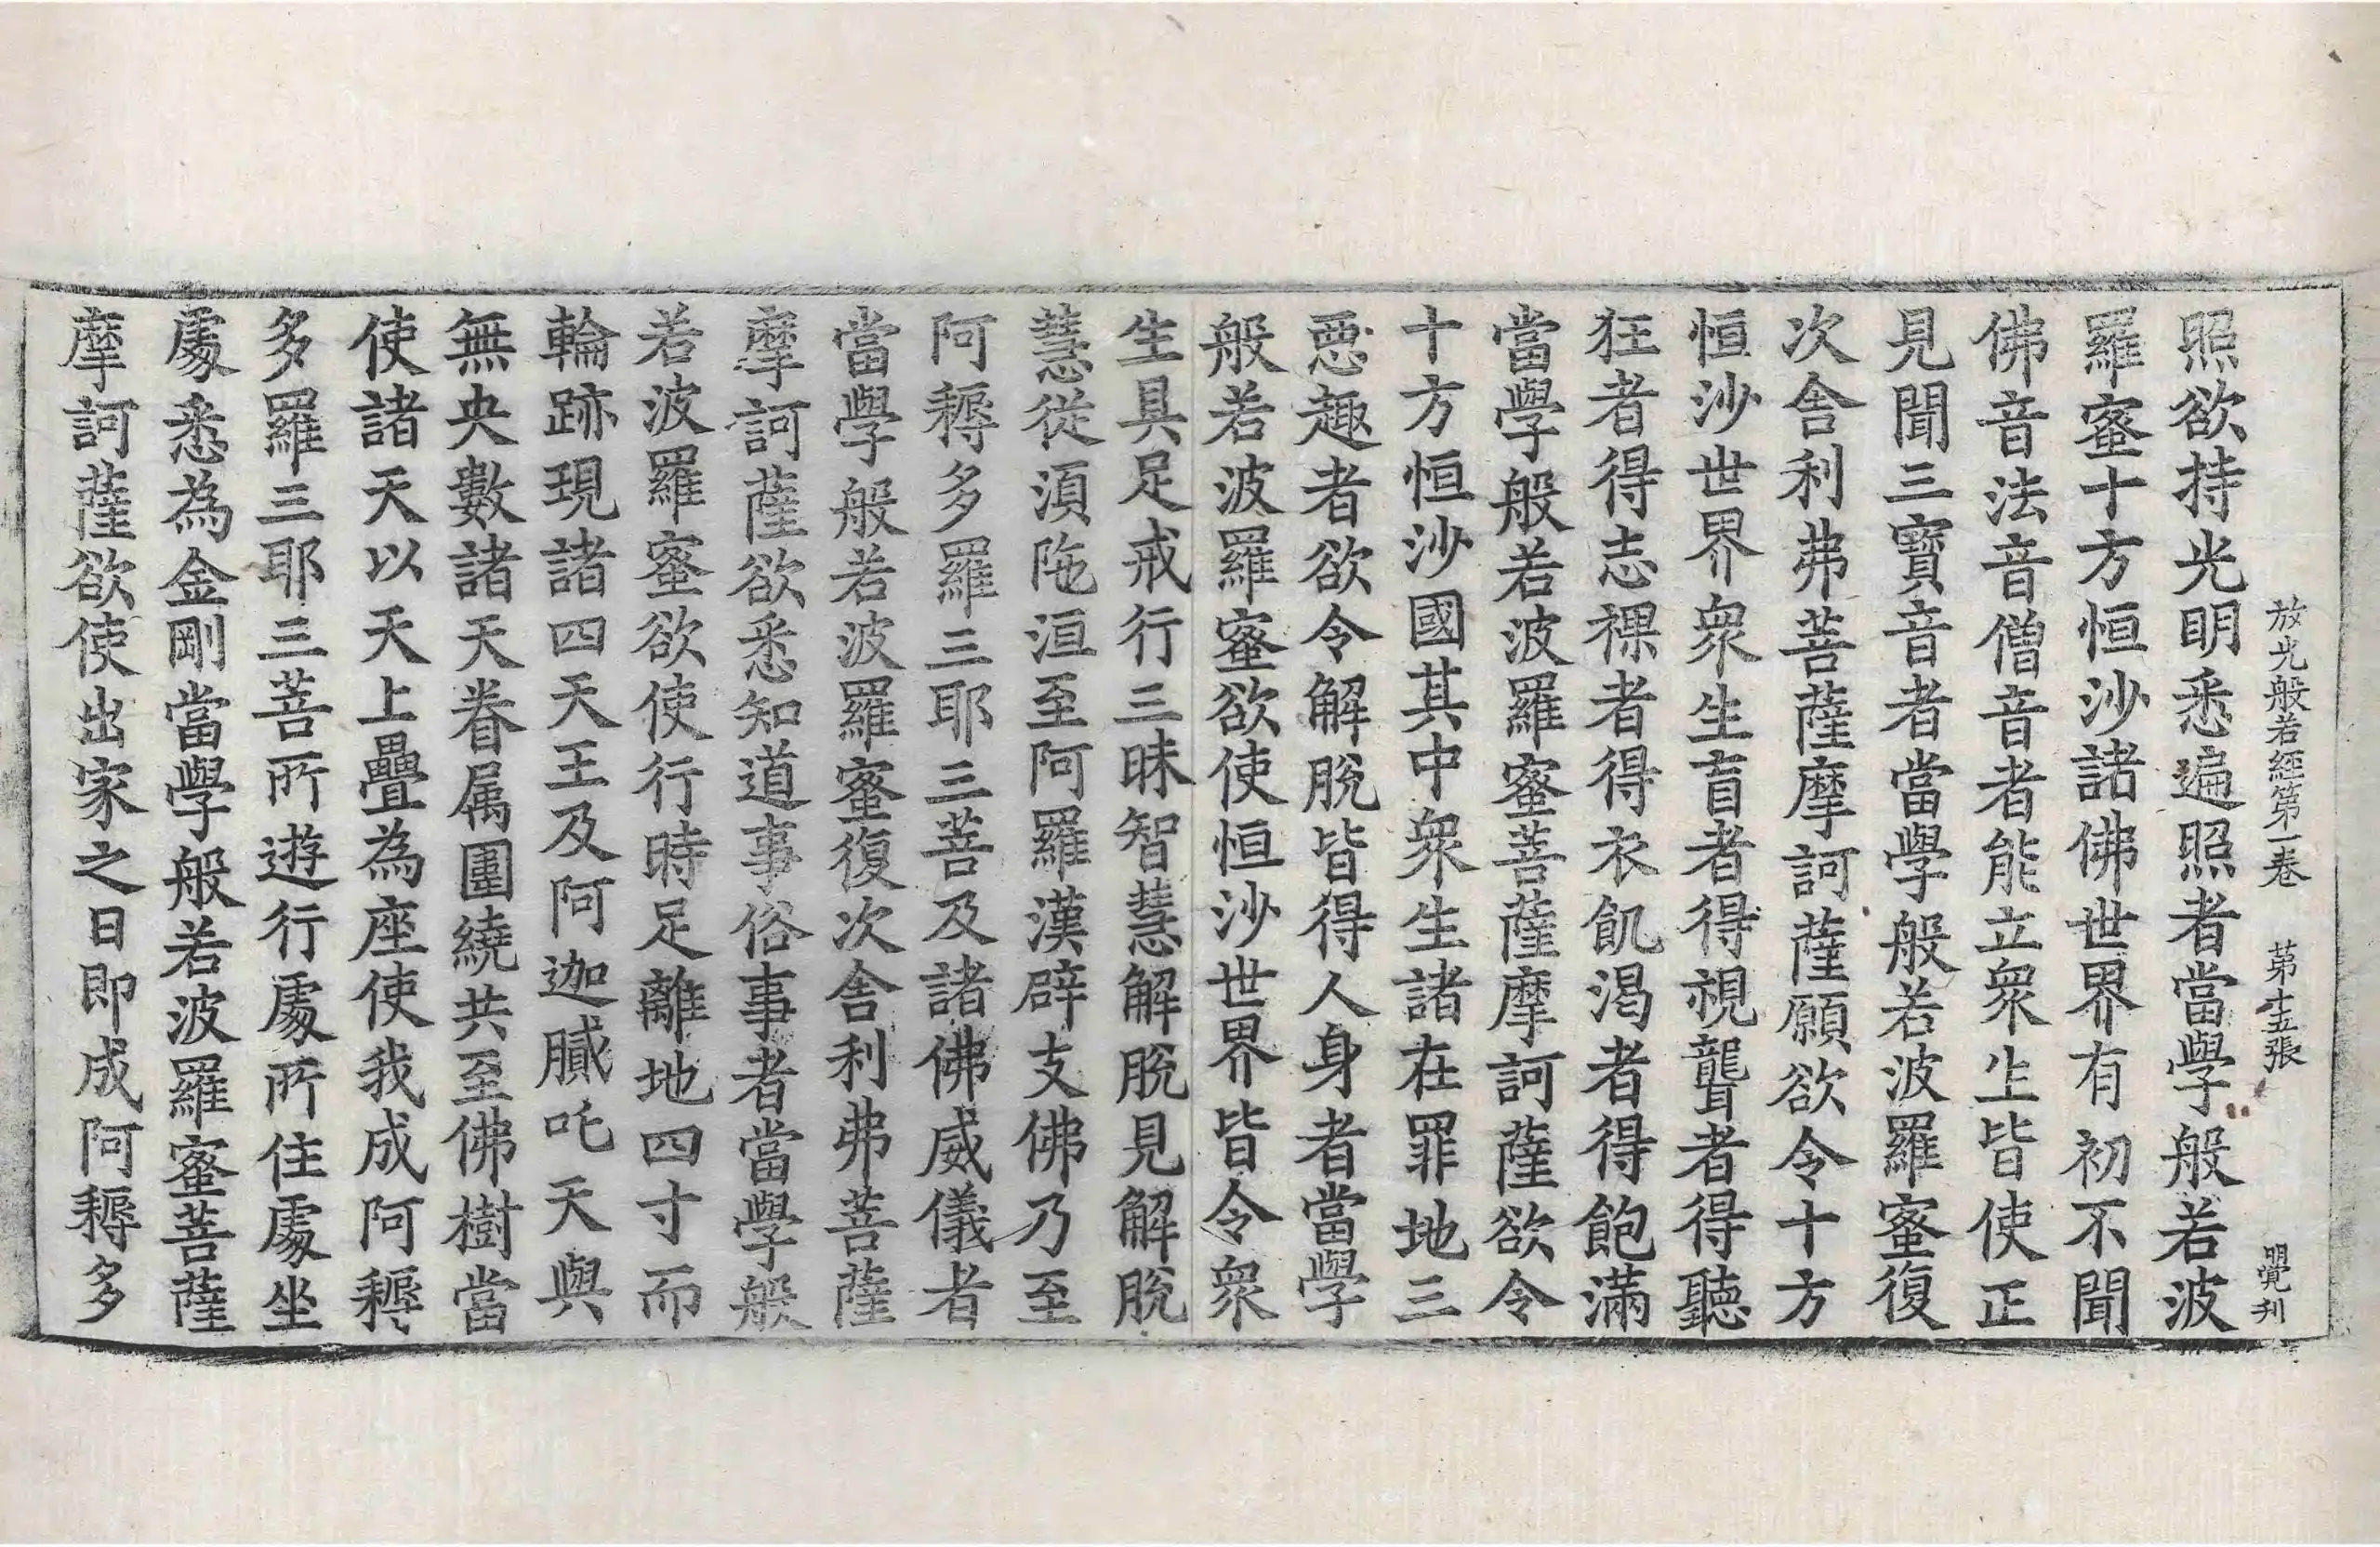 放光般若經第一卷　第十五張　明覺刊
照欲持光明悉遍照者當學般若波
羅蜜十方恒沙諸佛世界有初不聞
佛音法音僧音者能立衆生皆使正
見聞三寶音者當學般若波羅蜜復
次舍利弗菩薩摩訶薩願欲令十方
恒沙世界衆生盲者得視聾者得聽
狂者得志裸者得衣飢渴者得飽滿
當學般若波羅蜜菩薩摩訶薩欲令
十方恒沙國其中衆生諸在罪地三
惡趣者欲令解脫皆得人身者當學
般若波羅蜜欲使恒沙世界皆令衆
生具足戒行三昧智慧解脫見解脫
慧從湏陁洹至阿羅漢辟支佛乃至
阿耨多羅三耶三菩及諸佛威儀者
當學般若波羅蜜復次舍利弗菩薩
摩訶薩欲悉知道事俗事者當學般
若波羅蜜欲使行時足離地四寸而
輪跡現諸四天王及阿迦膩吒天與
無央數諸天眷属圍繞共至佛樹當
使諸天以天上疊為座使我成阿耨
多羅三耶三菩所遊行處所住處坐
處悉為金剛當學般若波羅蜜菩薩
摩訶薩欲使出家之日即成阿耨多